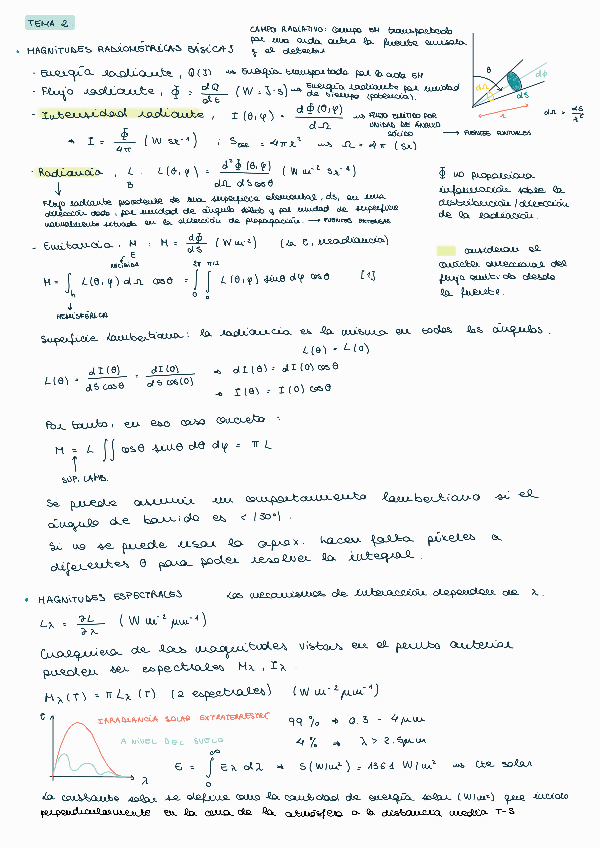 TEMA 2
CAMPO RADIATIVO: Campo EM transportado
por una onda entre la fuente emisora
y el detector
• MAGNITUDES RADIOMÉTRICAS BÁSICAS
- Energía radiante, Q (J) ⇝ Energía transportada por la onda EM
- Flujo radiante, Φ = dQ/dt (W = J·s) ⇝ Energía radiante por unidad
de tiempo (potencia).
- Intensidad radiante, I (θ,φ) = dΦ(θ,φ)/dΩ ⇝ FLUJO EMITIDO POR
UNIDAD DE ÁNGULO
SÓLIDO → FUENTES PUNTUALES
θ dφ
dΩ dS
r
dΩ = dS/r²
⇒ I = Φ/4π (W sr⁻¹) ; S = 4πr² ⇝ Ω = 4π (sr)
- Radiancia, L : L(θ,φ) = d²Φ(θ,φ)/dΩ dS cosθ (W m⁻² sr⁻¹)
B
Flujo radiante procedente de una superficie elemental, dS, en una
dirección dada, por unidad de ángulo sólido y por unidad de superficie
normalmente situada en la dirección de propagación. → FUENTES EXTENSAS
Φ no proporciona
información sobre la
distribución/dirección
de la radiación.
- Emitancia, M : M = dΦ/dS (W m⁻²) (La E, irradiancia)
E
RECIBIDA
M = ∫h L(θ,φ) dΩ cosθ = ∫₀^2π ∫₀^π/2 L(θ,φ) sinθ dφ cosθ [1]
HEMISFÉRICA
consideran el
carácter direccional del
flujo emitido desde
la fuente.
Superficie lambertiana: la radiancia es la misma en todos los ángulos.
L(θ) = L(0)
L(θ) = dI(θ)/dS cosθ = dI(0)/dS cos(0) ⇒ dI(θ) = dI(0) cosθ
⇒ I(θ) = I(0) cosθ
Por tanto, en ese caso concreto :
M = L ∫∫ cosθ sinθ dθ dφ = π L
SUP. LAMB.
Se puede asumir un comportamiento lambertiano si el
ángulo de barrido es < |30°|.
Si no se puede usar la aprox. hacen falta píxeles a
diferentes θ para poder resolver la integral.
• MAGNITUDES ESPECTRALES Los mecanismos de interacción dependen de λ.
Lλ = ∂L/∂λ (W m⁻² μm⁻¹)
Cualquiera de las magnitudes vistas en el punto anterior
pueden ser espectrales Mλ, Iλ.
Mλ(T) = π Lλ(T) (2 espectrales) (W m⁻² μm⁻¹)
E
IRRADIANCIA SOLAR EXTRATERRESTRE
A NIVEL DEL SUELO
λ
99% ⇒ 0.3 - 4 μm
4% ⇒ λ > 2.5μm
E = ∫₀^∞ Eλ dλ ⇒ S(W/m²) = 1361 W/m² ⇝ Cte solar
La constante solar se define como la cantidad de energía solar (W/m²) que incide
perpendicularmente en la cima de la atmósfera a la distancia media T-S